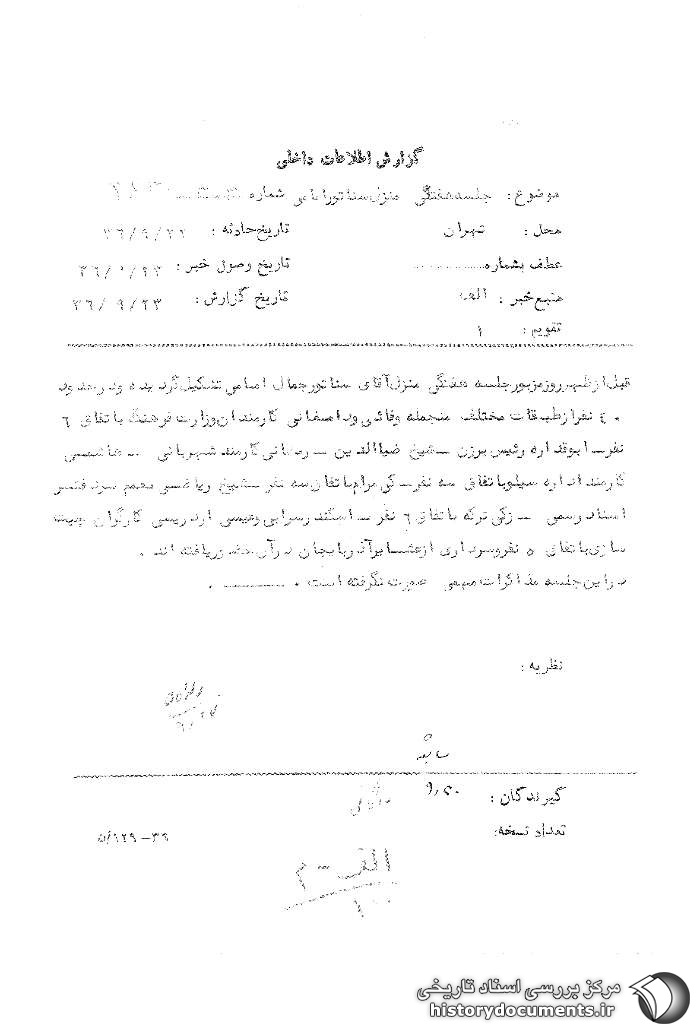 گزارش اطلاعات داخلی
موضوع: جلسه هفتگی منزل سناتور امامی شماره
محل: تهران تاریخ حادثه: ۳۶/۹/۲۲
عطف بشماره............ تاریخ وصول خبر: ۳۶/۹/۲۳
منبع خبر: الف تاریخ گزارش: ۳۶/۹/۲۳
تقویم: ۱
قبل از ظهر روز مزبور جلسه هفتگی منزل آقای سناتور جمال امامی تشکیل گردیده و در حدود
۴۰ نفر از طبقات مختلف منجمله وفائی و داصفانی کارمندان وزارت فرهنگ باتفاق ۶
نفر ـ ابوقداره رئیس برزن ـ شیخ ضیاالدین ـ رمضانی کارمند شهربانی ـ هاشمی
کارمند اداره سیلو باتفاق سه نفر ـ کی مرام باتفاق سه نفر ـ شیخ ریاضی معمم سردفتر
اسناد رسمی ـ زکی ترکه باتفاق ۶ نفر ـ اسکندر سرابی و عیسی اردریسی کارگران چیت
سازی باتفاق ۵ نفر و سرداری از عشایر آذربایجان در آن حضور یافته اند.
در این جلسه مذاکرات مهمی صورت نگرفته است.
نظریه:
سابقه
گیرندگان: ۹٫۲۰
تعداد نسخه: ۵/۱۲۹-۳۶
الف - م
۱۰۰
مرکز بررسی اسناد تاریخی
historydocuments.ir